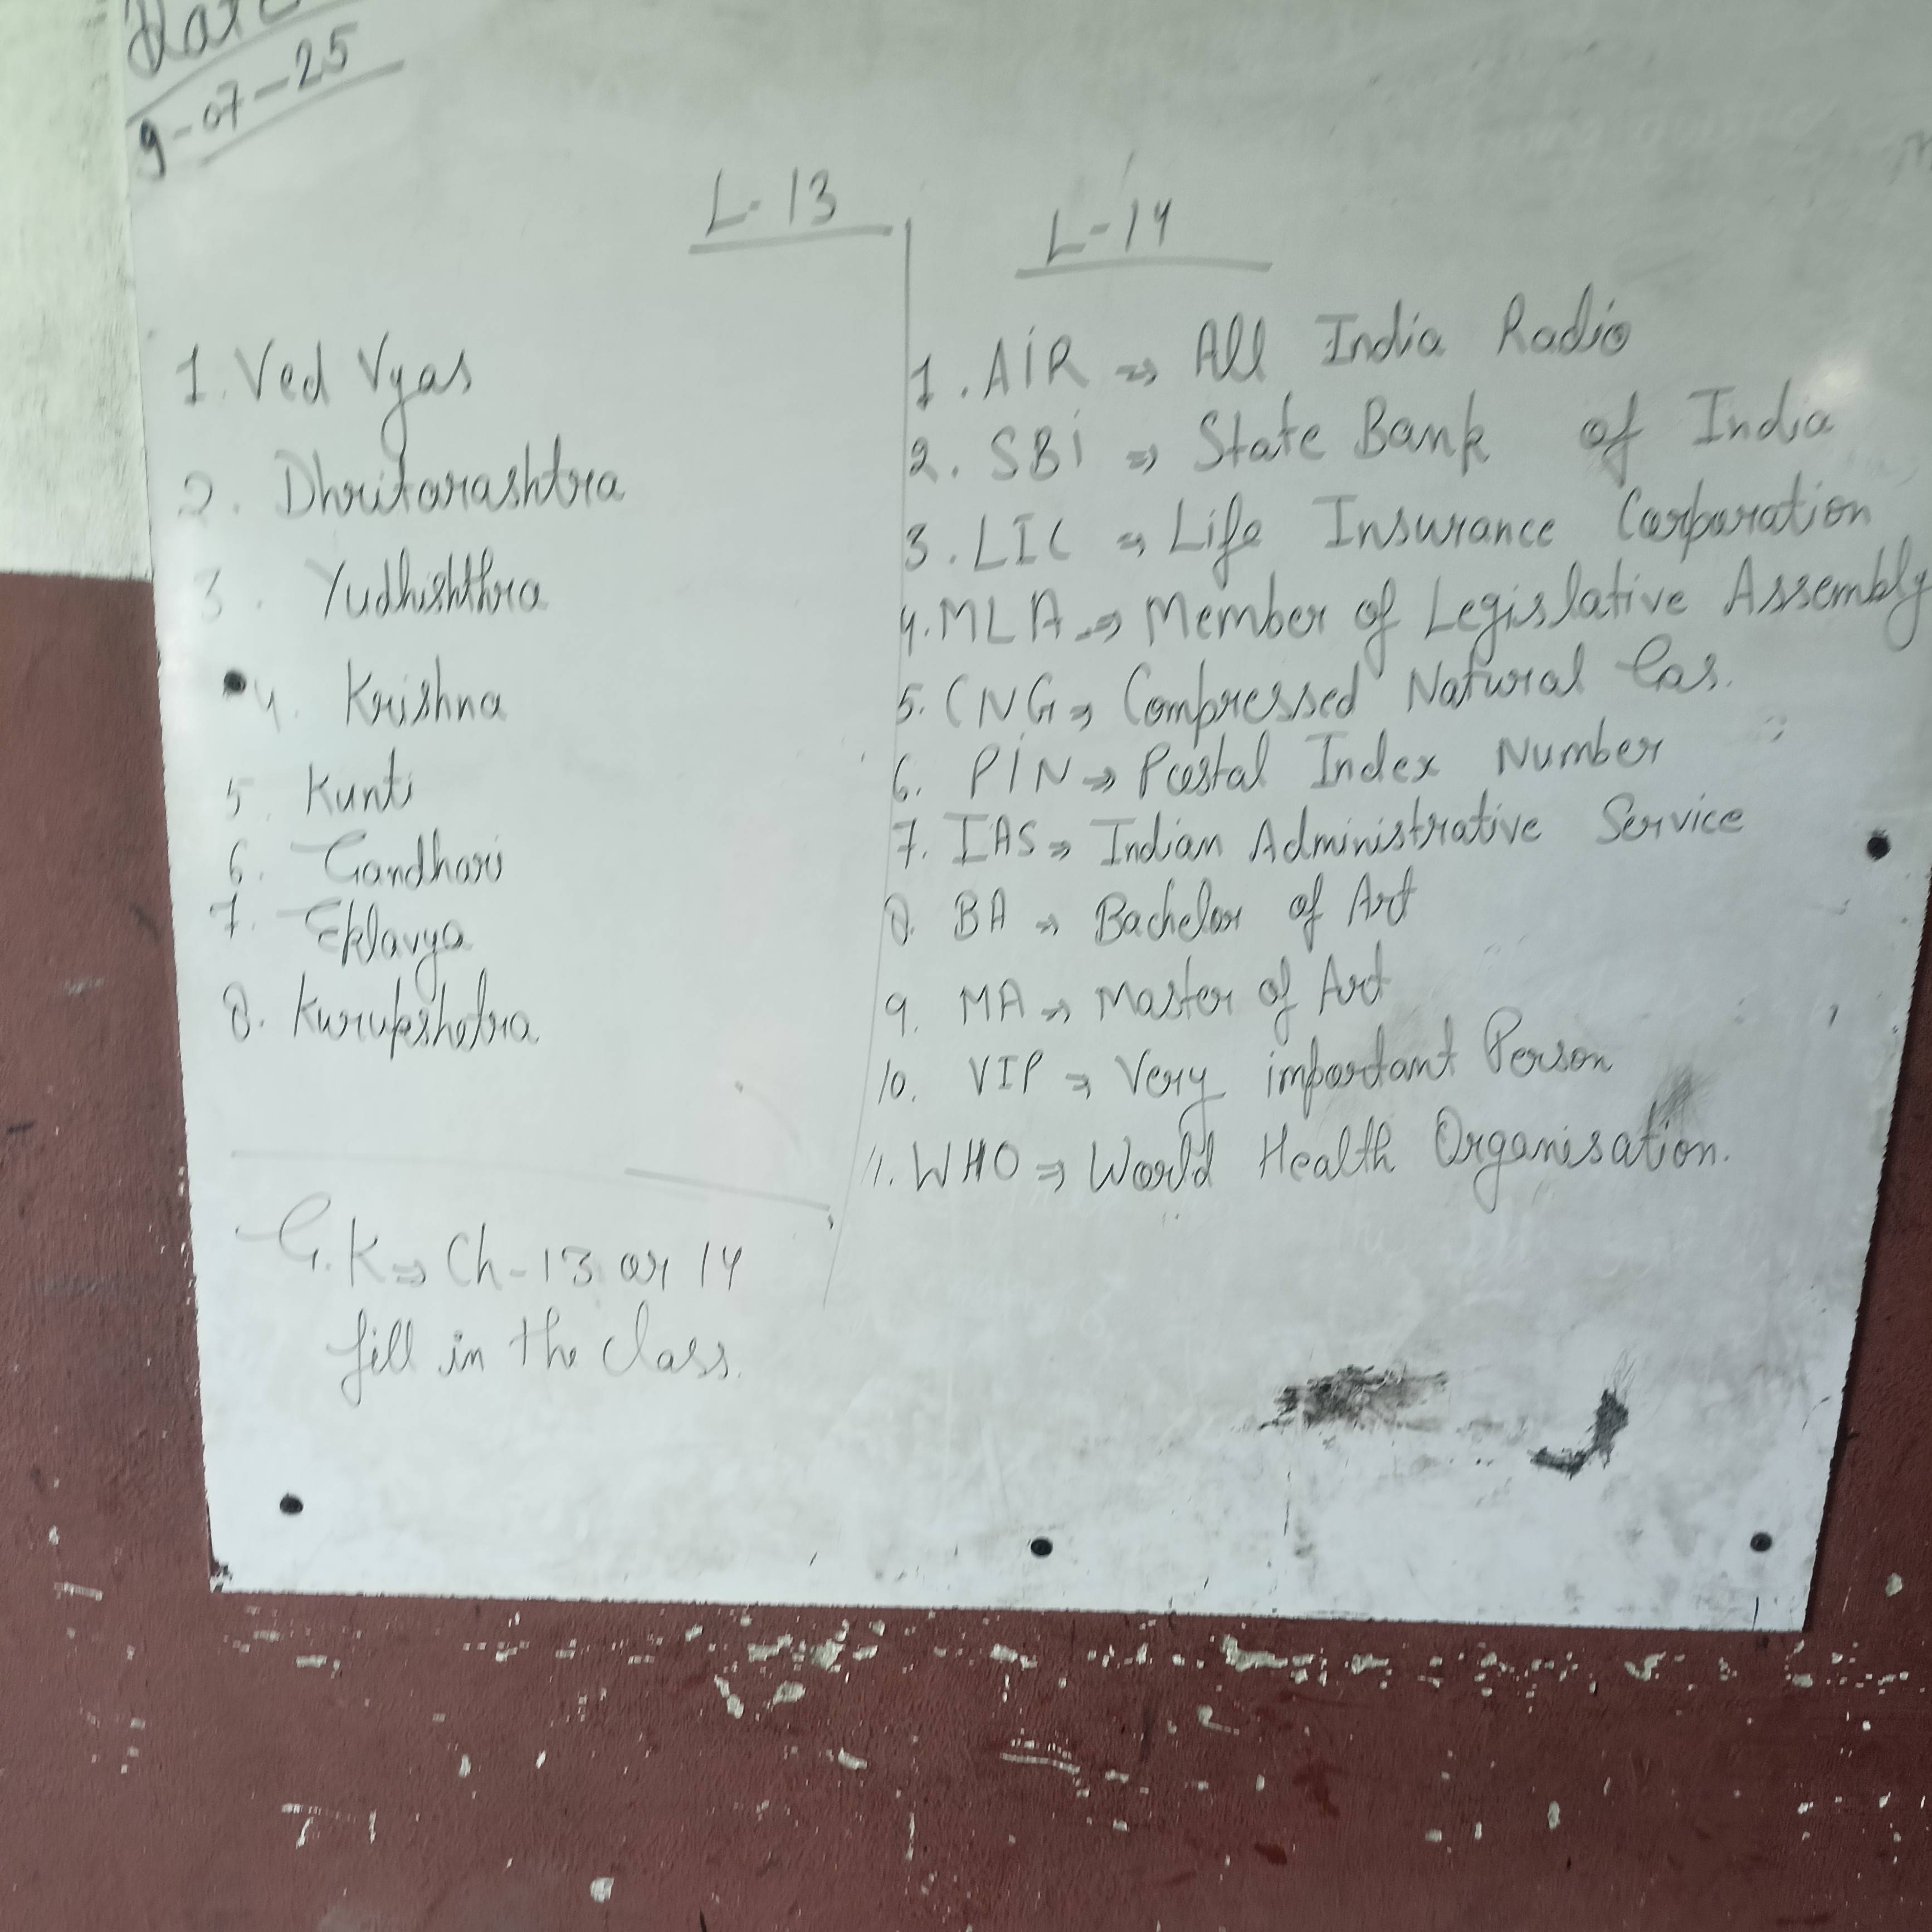 Date
9-07-25
L-13
1. Ved Vyas
2. Dhritarashtra
3. Yudhishthra
4. Krishna
5. Kunti
6. Gandhari
7. Eklavya
8. Kurukshetra
G.K ⇒ Ch-13 or 14
fill in the class.
L-14
1. AIR ⇒ All India Radio
2. SBI ⇒ State Bank of India
3. LIC ⇒ Life Insurance Corporation
4. MLA ⇒ Member of Legislative Assembly
5. CNG ⇒ Compressed Natural Gas.
6. PIN ⇒ Postal Index Number
7. IAS ⇒ Indian Administrative Service
8. BA ⇒ Bachelor of Art
9. MA ⇒ Master of Art
10. VIP ⇒ Very important Person
11. WHO ⇒ World Health Organisation.